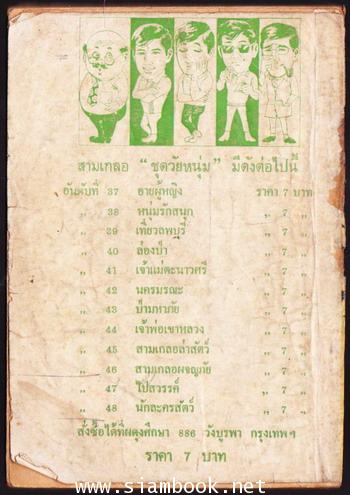 สามเกลอ "ชุดวัยหนุ่ม" มีดังต่อไปนี้
อันดับที่ 37 อายผู้หญิง ราคา 7 บาท
,, 38 หนุ่มรักสนุก ,, 7 ,,
,, 39 เที่ยวลพบุรี ,, 7 ,,
,, 40 ล่องป่า ,, 7 ,,
,, 41 เจ้าแม่ตะนาวศรี ,, 7 ,,
,, 42 นครมรณะ ,, 7 ,,
,, 43 ป่ามหาภัย ,, 7 ,,
,, 44 เจ้าพ่อเขาหลวง ,, 7 ,,
,, 45 สามเกลอล่าสัตว์ ,, 7 ,,
,, 46 สามเกลอผจญภัย ,, 7 ,,
,, 47 ไปสวรรค์ ,, 7 ,,
,, 48 นักละครสัตว์ ,, 7 ,,
สั่งซื้อได้ที่ผดุงศึกษา 886 วังบูรพา กรุงเทพฯ
ราคา 7 บาท
www.siambook.net